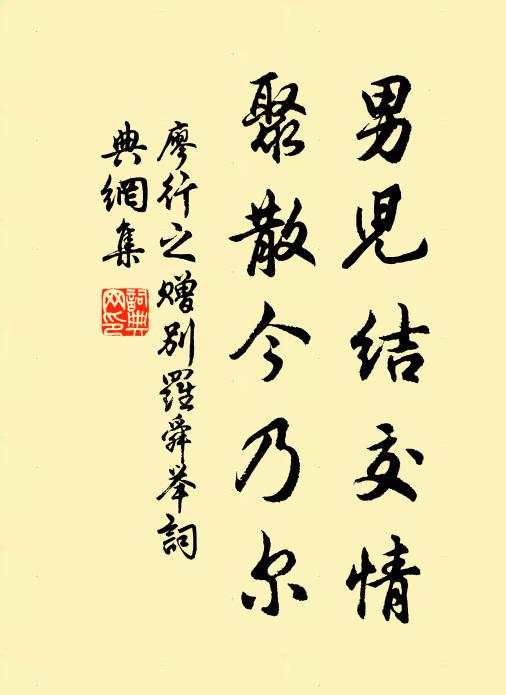 男児结交情
聚散今乃尔
廖行之赠别羅舜举詞
典網集
詞典
网印